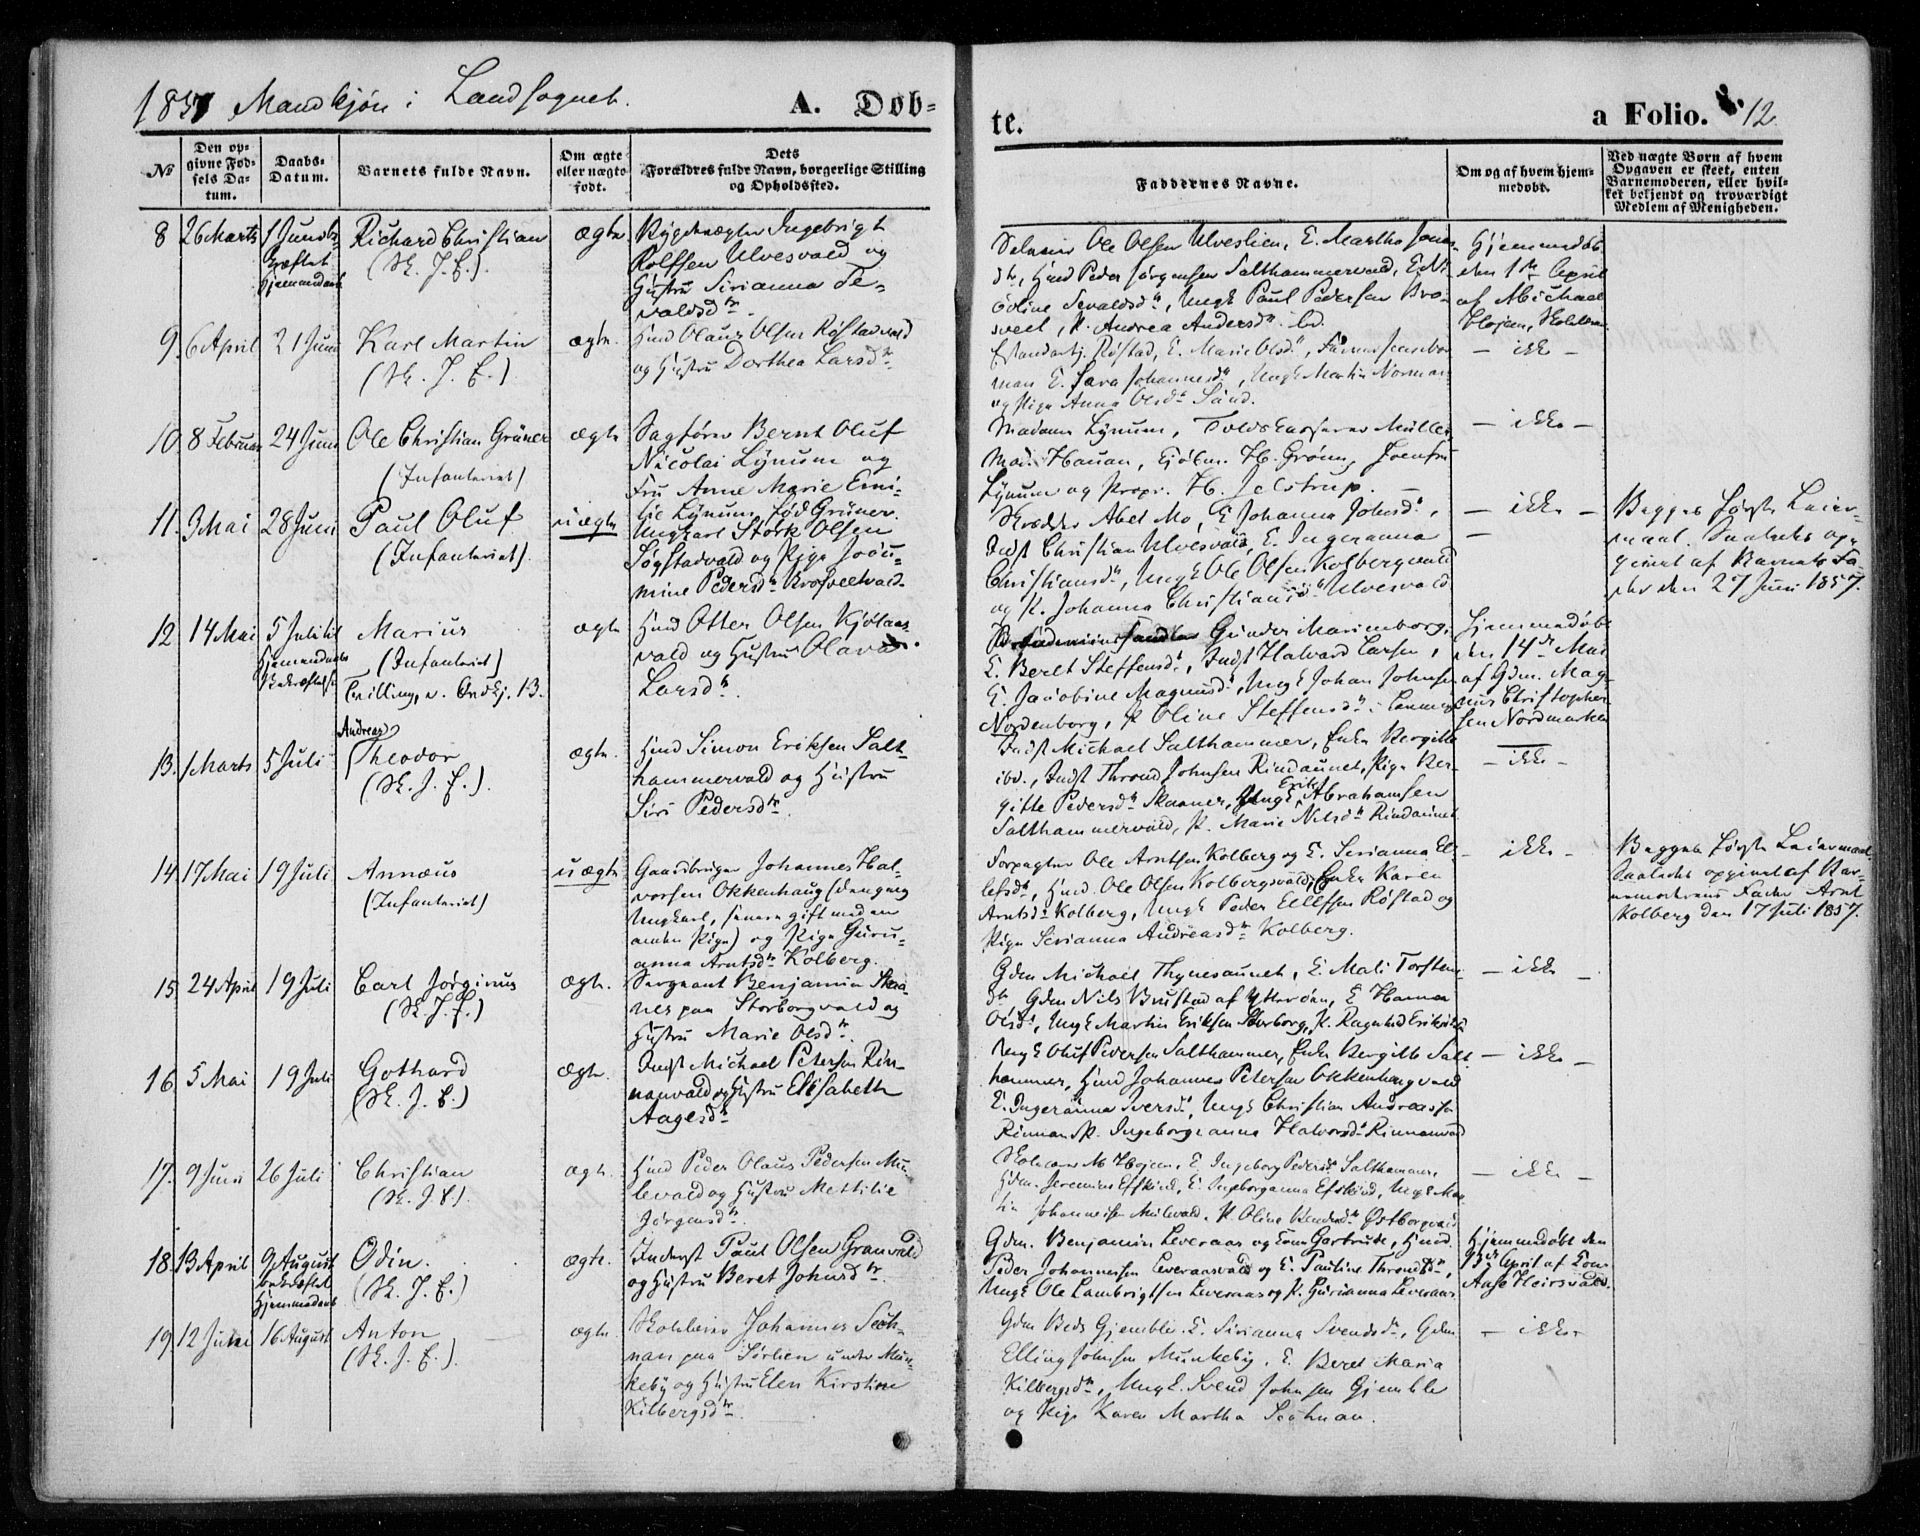 1857 Mandkjøn i Landsognet.
A. Døb-
te.
a Folio. 12.
№
Den op-
givne Fød-
sels Da-
tum.
Daabs-
Datum.
Barnets fulde Navn.
Om ægte
eller uægte
født.
Dets
Forældres fulde Navn, borgerlige Stilling
og Opholdssted.
Faddernes Navne.
Om og af hvem hjem-
medøbt.
Ved uægte Børn af hvem
Opgaven er skeet, enten
Barnemoderen, eller hvil-
ket bekjendt og troværdigt
Medlem af Menigheden.
8 26 Marts
Richard Christian
(Sk. J. E.)
ægte
Ingebrigt
Rolfsen Ulvesvald og
Hustru Sirianna Se-
valdsdtr.
Ole Olsen Ulveslien, E. Martha Jons-
dtr, Huusmd Peder Jørgensen Salthammervald, E.
Ovline Sevaldsdtr, Ungk Paul Pedersen
P. Andrea Andersdtr ibd.
Hjemmedøbt
den 1ste April
af Michael
Hojem,
9. 6 April 21 Juni
Karl Martin
(Sk. J. E.)
ægte.
Huusmd Olaus Olsen Røstadvald
og Hustru Dorthea Larsdtr
Røstad, E. Marie Olsdtr,
E. Sara Johannesdtr, Ungk Martin Norman
og Pige Anna Olsdtr Sund.
— ikke —
10. 8 Februar 24 Juni
Ole Christian Grüner
(Infanteriet)
ægte
Sagfører Bernt Oluf
Nicolai Lynum og
Fru Anne Marie Emi-
lie Lynum, fød Grüner.
Madame Lynum, Toldkasserer Müller
Mad. Hauan, Kjøbm. H. Grønn, Jomfru
Lynum og Propr. H. Jelstrup. —
— ikke —
11. 9 Mai 28 Juni
Paul Oluf
(Infanteriet).
uægte
Ungkarl Størk Olsen
Søgstadvald og Pige
mine Pedersdtr
Skrædder Abel Mo, E. Johanna Johnsdtr,
Indst Christian Ulvesvald, E. Ingeranna
Christiansdtr, Ungk Ole Olsen Kolbergvald
og P. Johanna Christiansdtr Ulvesvald
— ikke —
—
Begges første Leier-
maal. Saaledes op-
givet af Barnets Fa-
der den 27 Juni 1857.
12 14 Mai 5 Juli til
Hjemmedaabs
Bekræftelse
Marius
(Infanteriet)
Tvilling, v. Qvdkj. 13.
ægte
Huusmd Otter Olsen Kjølaas-
vald og Hustru Olava
Larsdtr.
Gunder Marienborg,
E. Beret Steffensdtr, Indst Halvard Larsen,
E. Jacobine Magnusdtr, Ungk Johan Johnsen
Nordenborg, P. Oline Steffensdtr i
Hjemmedøbt
den 14de Mai
af Gdm. Mag-
nus Christopher-
sen Nordmarken
13. 1 Marts 5 Juli
Andreas
Theodor
(Sk. J. E.).
ægte.
Huusmd Simon Eriksen Salt-
hammervald og Hustru
Siri Pedersdtr.
Indst Michael Salthammer, Enke Bergitte
ibd., Indst Thrond Johnsen Rindaunet, Pige Ber-
gitte Pedersdtr Skaaner, Ungk Erik Abrahamsen
Salthammervald, P. Marie Nilsdtr Rindaunet
— ikke —
14. 17 Mai 19 Juli
Annæus
(Infanteriet)
uægte
Gaardbruger Johannes Hal-
vorsen Okkenhaug (dengang
Ungkarl, senere gift med en
anden Pige) og Pige Guru-
anna Arntsdtr Kolberg.
Forpagter Ole Arntsen Kolberg og E. Sirianna El-
lefsdtr, Huusmd. Ole Olsen Kolbergsvald, Enke Karen
Arntsdtr Kolberg, Ungk Peder Ellefsen Røstad og
Pige Sirianna Andreasdtr Kolberg.
— ikke —
Begges første Leiermaal
Saaledes opgivet af Bar-
nemoderens Fader Arnt
Kolberg den 17 Juli 1857.
15. 24 April 19 Juli
Carl Jørginus
(Sk. J. E.)
ægte.
Sergeant Benjamin Skaa-
nes paa Storborgvald og
Hustru Marie Olsdtr.
Gdm Michael Thynesaunet, E. Mali Torstens-
dtr, Gdm Nils Brustad af Ytterøen, E. Hanna
Olsdtr, Ungk Martin Eriksen Storborg, P. Ragnhild Eriksdtr
— ikke —
16. 5 Mai 19 Juli
Gothard
(Sk. J. E.)
ægte.
Indst Michael Petersen Rin-
nanvald og Hustru Elisabeth
Aagesdtr
Ungk Oluf Pedersen Salthammer, Enke Bergitte Salt-
hammer, Huusmd Johannes Petersen Okkenhaugvald
E. Ingeranna Iversdtr, Ungk Christian Andreassen
Rinnan P. Ingeborganna Halvorsdtr Rinnanvald
— ikke —
17. 9 Juni 26 Juli
Christian
(Sk. J. E.).
ægte.
Huusmd Peder Olaus Pedersen Mu-
levald og Hustru Mettilie
Jørgensdtr.
M. Hojem, E. Ingeborg Pedersdtr Salthammer,
Gdm. Jeremias Efskind, E. Ingeborganna Efskind, Ungk Mar-
tin Johannesen Mulevald, P. Oline Østborgvald
— ikke —
18. 13 April 9 August
bekræftet
Hjemmedaab
Odin.
(Sk. J. E.)
ægte.
Inderst Paul Olsen Granvald
og Hustru Beret Johnsdtr.
Gdm. Benjamin Leveraas og Kone Gertrude, Huusmd.
Peder Johannesen Leveraasvald og E. Pauline Thronds dtr,
Ungk Ole Lambrigtsen Leveraas og P. Gurianna Leveraas
Hjemmedøbt den
13de April af Kone
Aase Heirsvald.
19. 12 Juni 16 August
Anton
(Sk. J. E.).
ægte.
Skolelærer Johannes
paa Sørlien under Mun-
keby og Hustru Elen Kirstine
Kilbergsdtr.
Gdm Beds Gjemble. E. Sirianna Svendsdtr, Gdm
Elling Johnsen Munkeby, E. Beret Maria
Kilbergsdtr, Ungk. Svend Johnsen Gjemble
og Pige Karen Martha
— ikke —